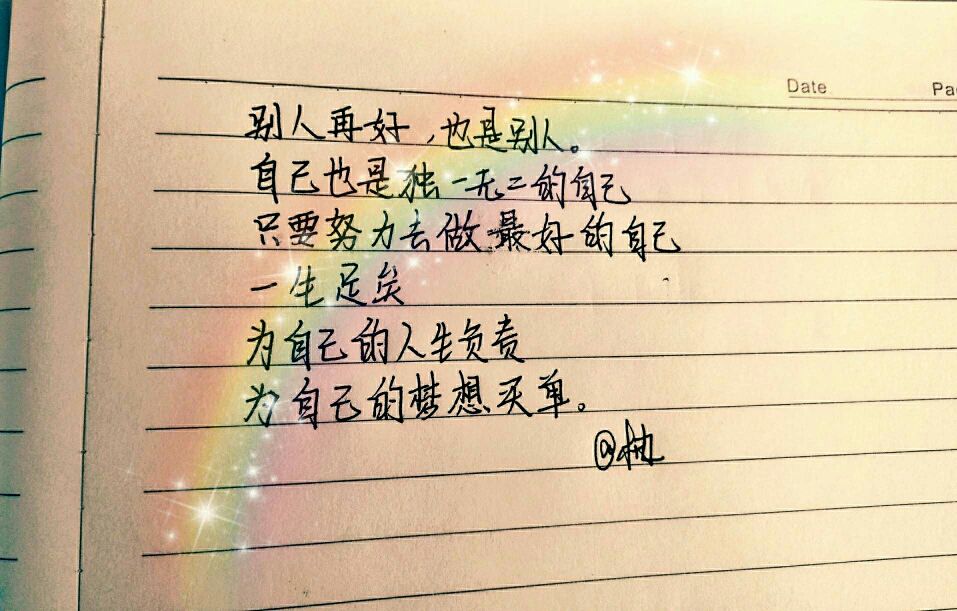 Date
Pa
别人再好,也是别人。
自己也是独一无二的自己
只要努力去做最好的自己
一生足矣
为自己的人生负责
为自己的梦想买单。
@柚